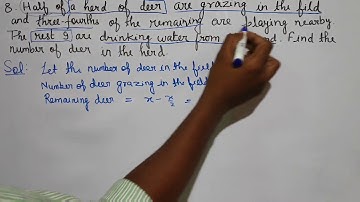 8. Half of a herd of deer are grazing in the field
and three-fourths of the remaining are playing nearby
The rest 9 are drinking water from Find the
number of deer in the herd
Sol: Let the number of deer in the
Number of deer grazing in the field
Remaining deer = x - x/2 =